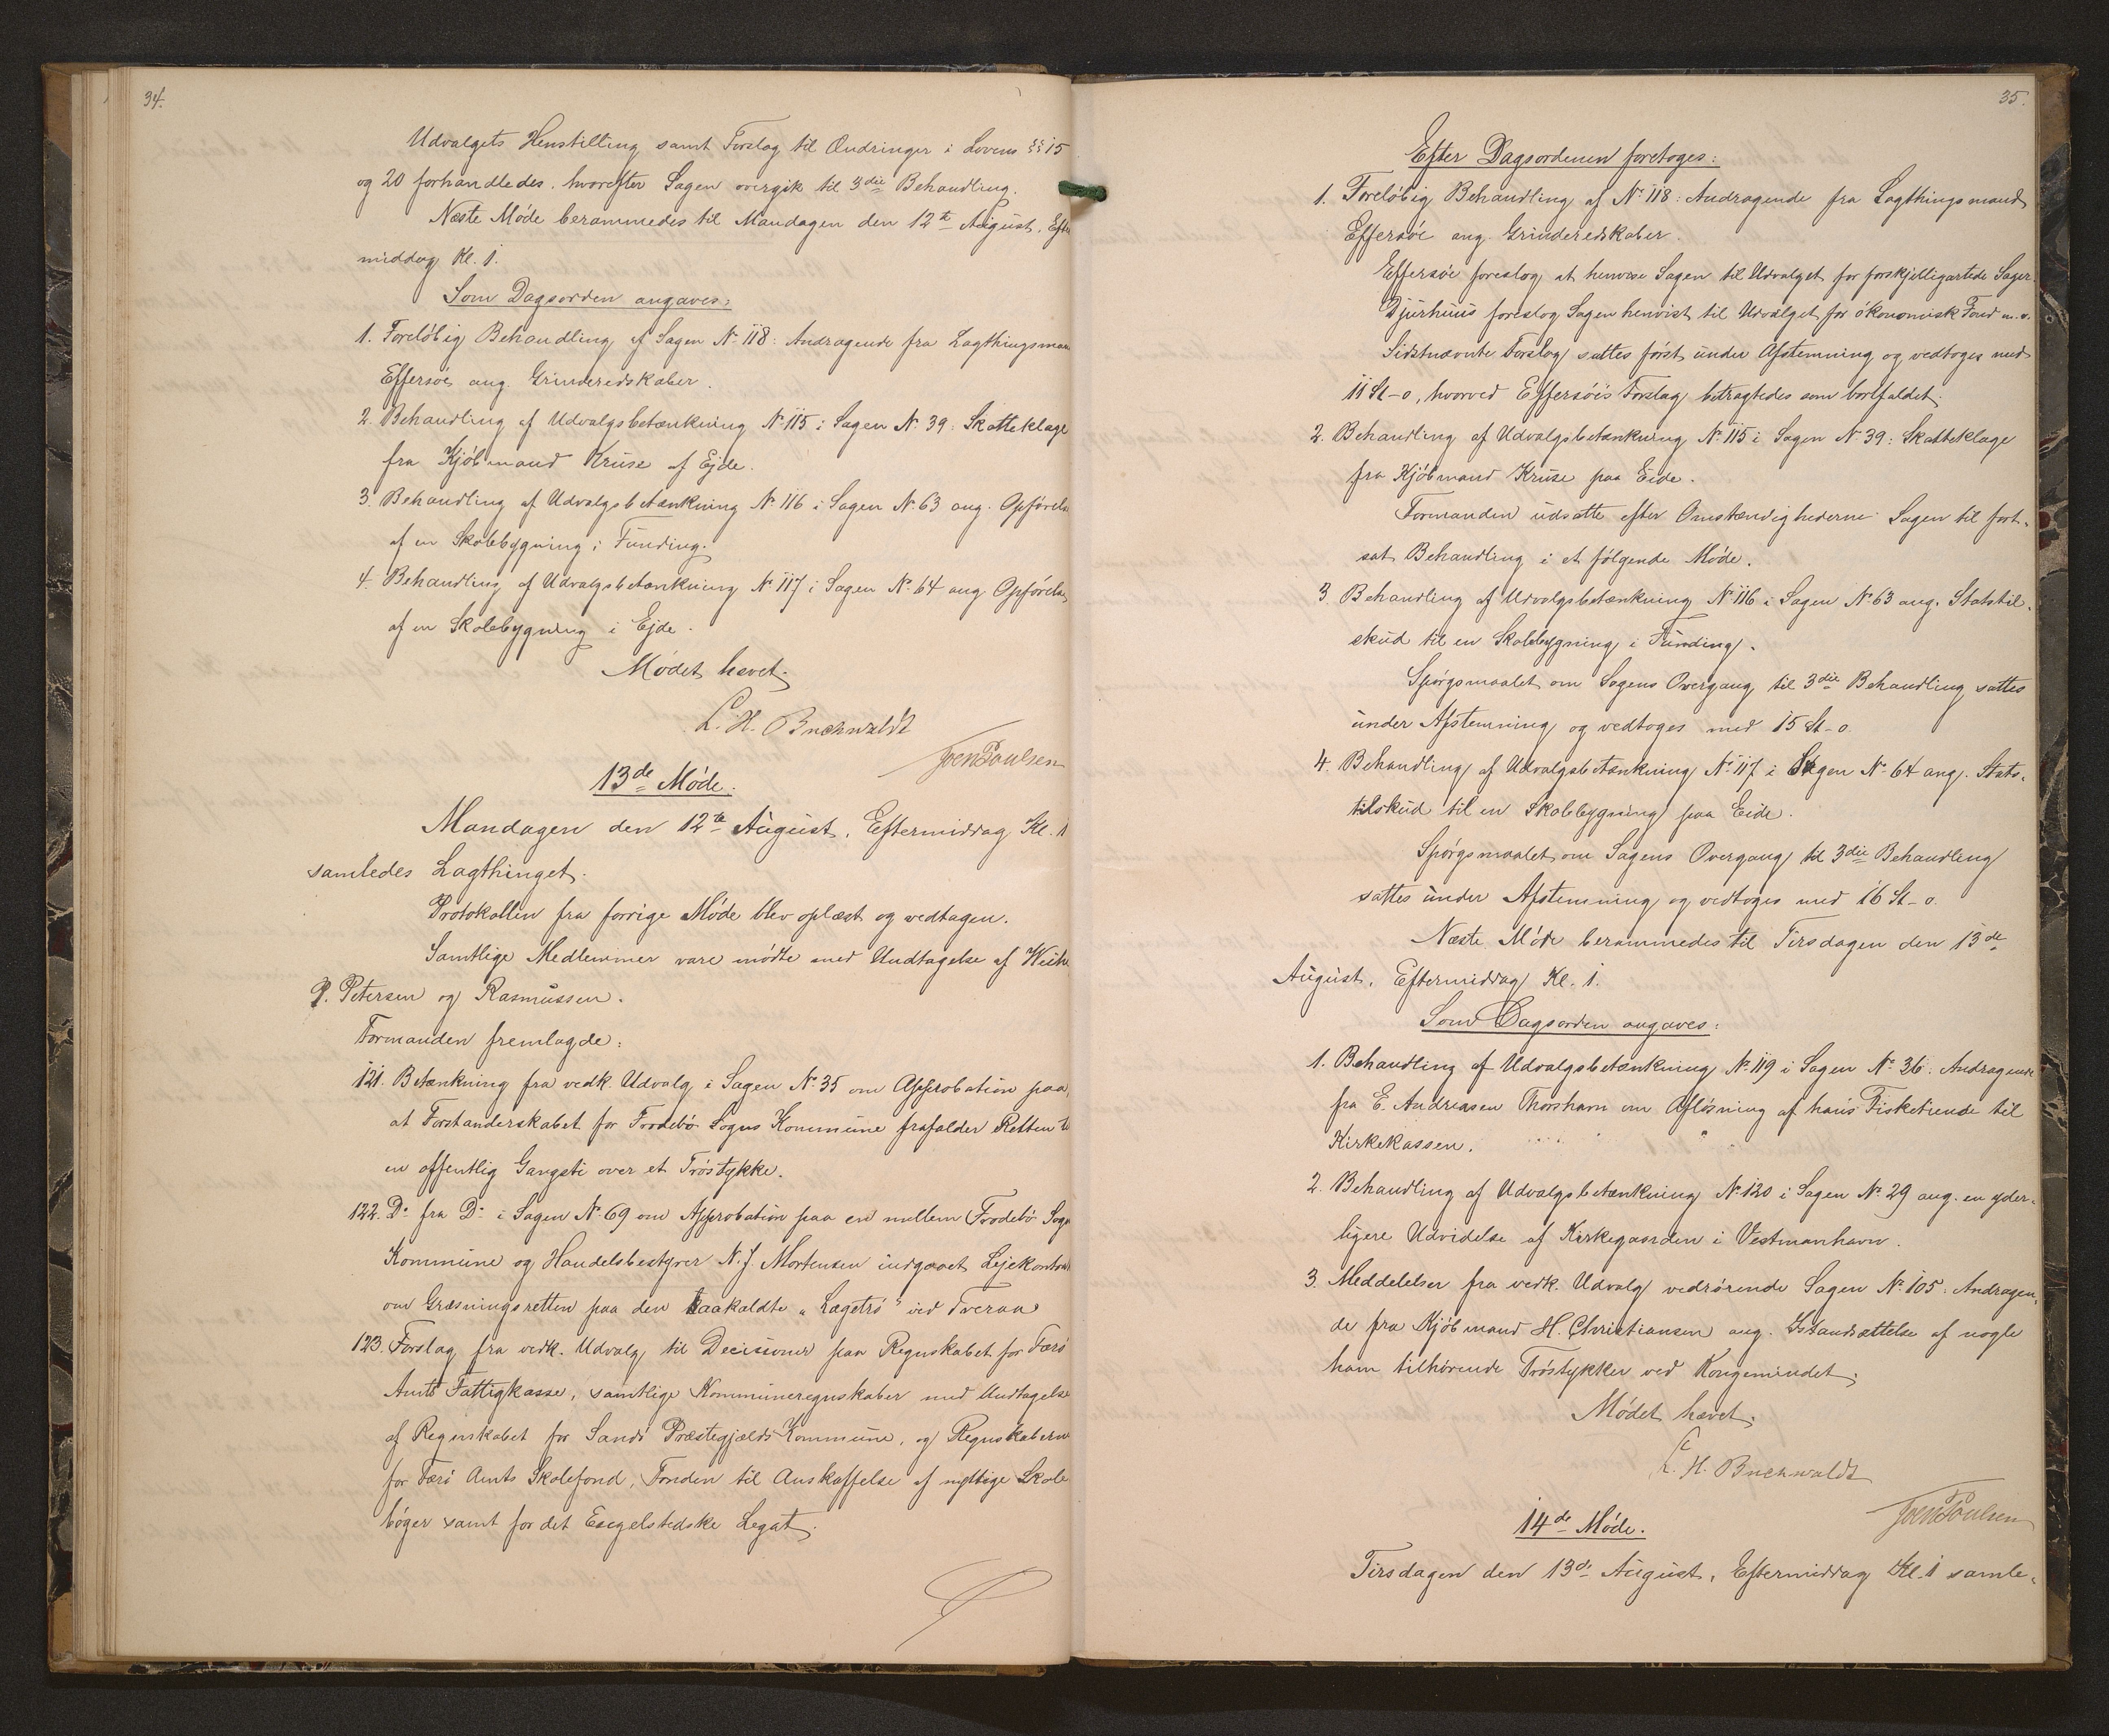 34.
Udvalgets Henstilling samt Forslag til Ændringer i Lovens §§ 15
og 20 forhandledes, hvorefter Sagen overgik til 3die Behandling.
Næste Møde berammedes til Mandagen den 12te August, Efter
middag Kl. 1.
Som Dagsorden angaves:
1. Foreløbig Behandling af Sagen No 118: Andragende fra Lagthingsman
Effersøe ang. Grinderedskaber.
2. Behandling af Udvalgsbetænkning No 115 i Sagen No 39: Skatteklage
fra Kjøbmand Kruse af Ejde.
3. Behandling af Udvalgsbetænkning No 116 i Sagen No 63 ang. Opførelse
af en Skolebygning i Funding.
4. Behandling af Udvalgsbetænkning No 117 i Sagen No 64 ang Opførelse
af en Skolebygning i Ejde.
Mødet hævet.
L. H. Buchwaldt
Joen Poulsen
13de Møde.
Mandagen den 12te August, Eftermiddag Kl. 1
samledes Lagthinget.
Protokollen fra forrige Møde blev oplæst og vedtagen.
Samtlige Medlemmer vare mødte med Undtagelse af
P. Petersen og Rasmussen.
Formanden fremlagde:
121. Betænkning fra vedk. Udvalg i Sagen No 35 om Approbation paa,
at Forstanderskabet for Frodebø Sogns Kommune frafalder Retten t
en offentlig Gangsti over et Trøstykke.
122. Do fra Do i Sagen No 69 om Approbation paa en mellem Frodebø Sogn
Kommune og Handelsbestyrer N. J. Mortensen indgaaet Lejekontrakt
om Græsningsretten paa den saakaldte "Lægetrø" ved Tveraa
123. Forslag fra vedk. Udvalg til Decisioner paa Regnskabet for Færø
Amts Fattigkasse, samtlige Kommuneregnskaber med Undtagelse
af Regnskabet for Sandø Præstegjælds Kommune, og Regnskaberne
for Færø Amts Skolefond, Fonden til Anskaffelse af nyttige Skole
bøger samt for det Engelstedske Legat.
35.
Efter Dagsordenen foretoges:
1. Foreløbig Behandling af No 118: Andragende fra Lagthingsmand
Effersøe ang. Grinderedskaber.
Effersøe foreslog at henvise Sagen til Udvalget for forskjelligartede Sager.
Djurhuus foreslog Sagen henvist til Udvalget for økonomisk Fond m. v.
Sidstnævnte Forslag sattes først under Afstemning og vedtoges med
11 St - 0, hvorved Effersøes Forslag betragtedes som bortfaldet.
2. Behandling af Udvalgsbetænkning No 115 i Sagen No 39: Skatteklage
fra Kjøbmand Kruse paa Eide.
Formanden udsatte efter Omstændighederne Sagen til fort-
sat Behandling i et følgende Møde.
3. Behandling af Udvalgsbetænkning No 116 i Sagen No 63 ang. Statstil-
skud til en Skolebygning i Funding.
Spørgsmaalet om Sagens Overgang til 3die Behandling sattes
under Afstemning og vedtoges med 15 St - 0.
4. Behandling af Udvalgsbetænkning No 117 i Sagen No 64 ang. Stats-
tilskud til en Skolebygning paa Eide.
Spørgsmaalet om Sagens Overgang til 3die Behandling
sattes under Afstemning og vedtoges med 16 St - 0.
Næste Møde berammedes til Tirsdagen den 13de
August, Eftermiddag Kl. 1.
Som Dagsorden angaves:
1. Behandling af Udvalgsbetænkning No 119 i Sagen No 36: Andragende
fra E. Andreasen Thorshavn om Afløsning af hans Fisketiende til
Kirkekassen.
2. Behandling af Udvalgsbetænkning No 120 i Sagen No 29 ang. en yder-
ligere Udvidelse af Kirkegaarden i Vestmanhavn.
3. Meddelelser fra vedk. Udvalg vedrørende Sagen No 105: Andragen-
de fra Kjøbmand H. Christiansen ang. Istandsættelse af nogle
ham tilhørende Trøstykker ved Kongemindet.
Mødet hævet.
L. H. Buchwaldt
Joen Poulsen
14de Møde.
Tirsdagen den 13de August, Eftermiddag Kl. 1 samle-